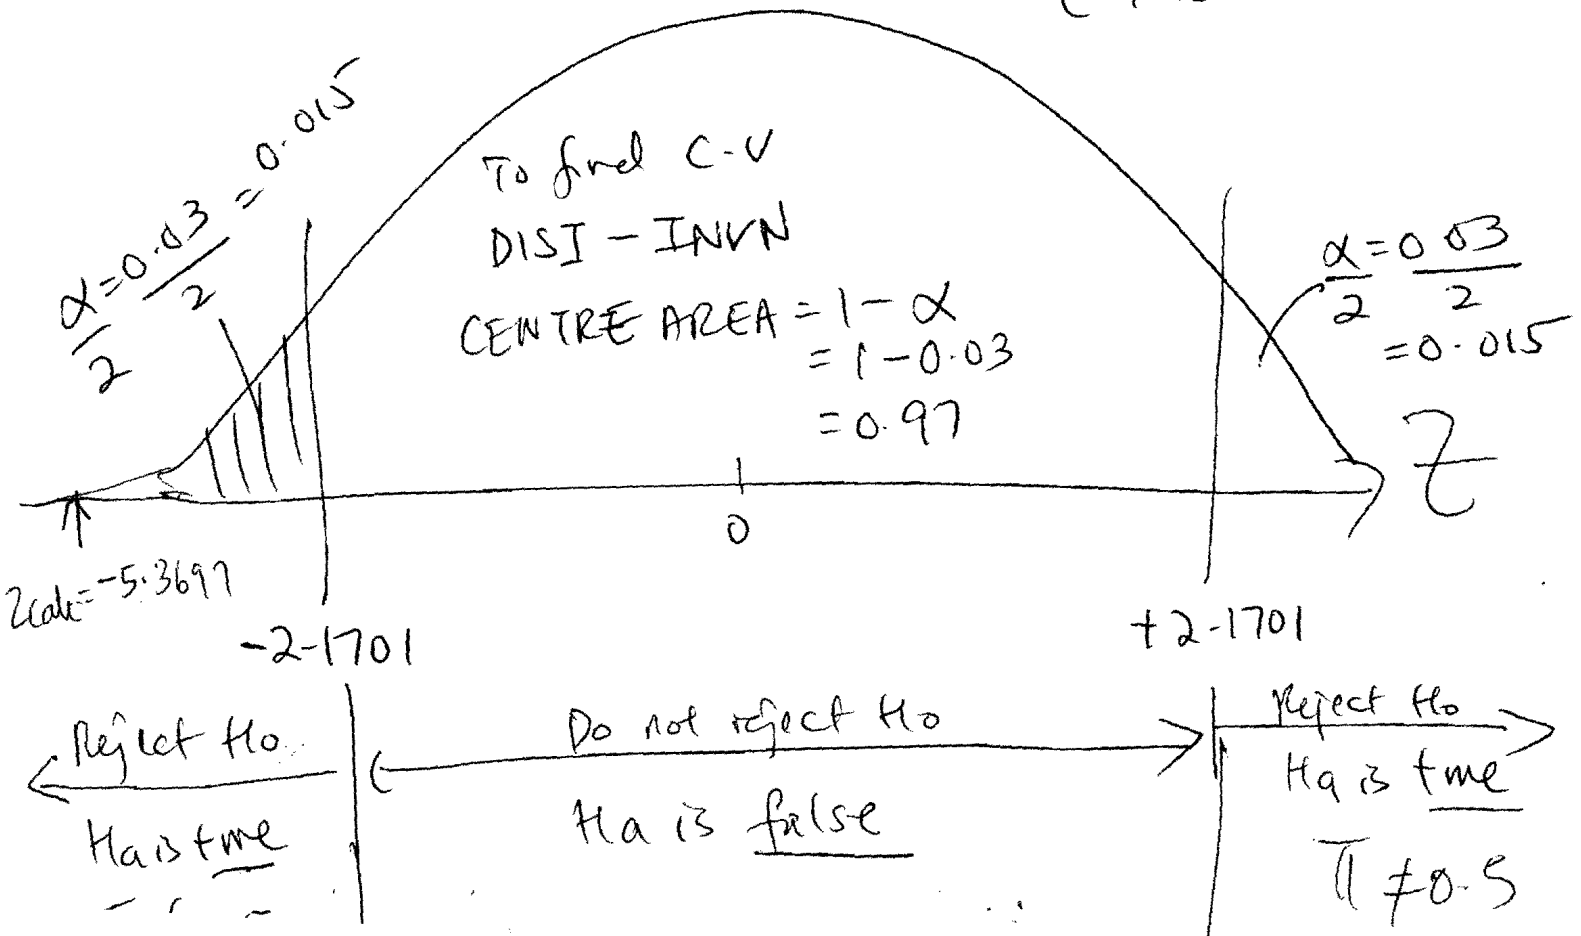 α/2 = 0.03/2 = 0.015
To find C-V
DISI - INVN
CENTRE AREA = 1 - α
= 1 - 0.03
= 0.97
α/2 = 0.03/2
= 0.015
Z
0
Zcalc = -5.3697
-2-1701
+2-1701
Reject Ho
Do not reject Ho
Reject Ho
Ha is true
Ha is false
Ha is true
π ≠ 0.5